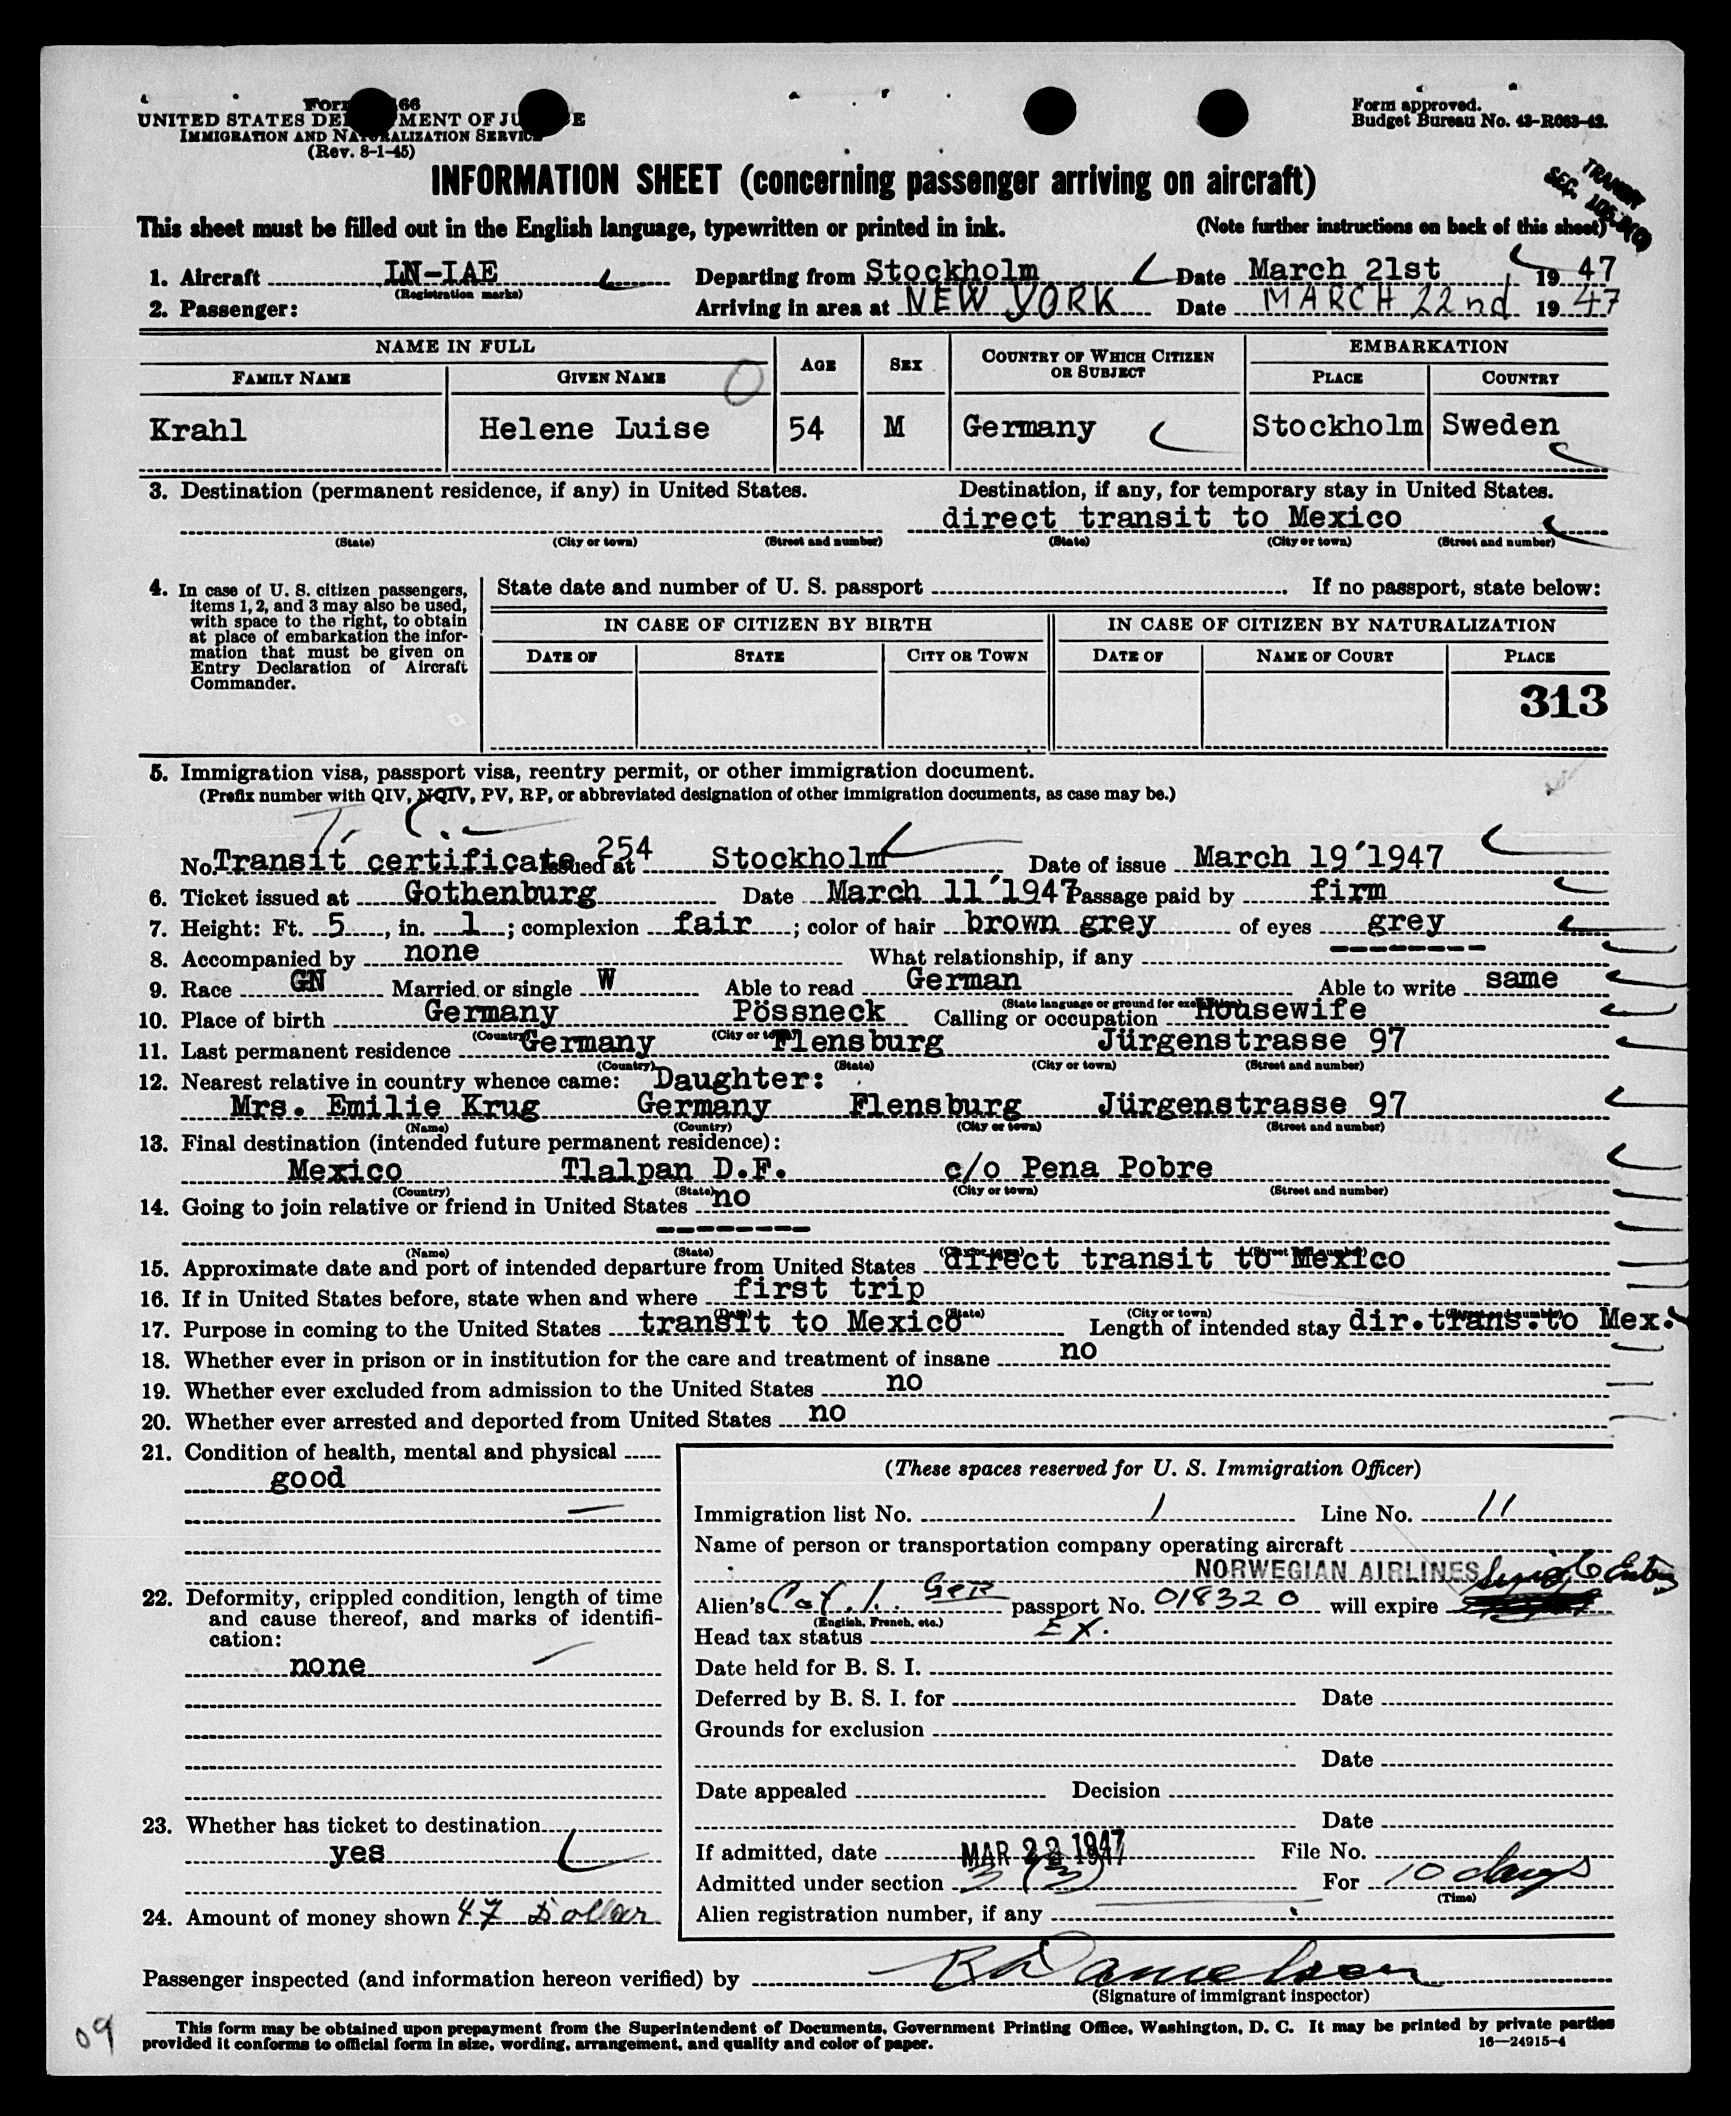 UNITED STATES DEPARTMENT OF JUSTICE
IMMIGRATION AND NATURALIZATION SERVICE
(Rev. 8-1-45)
Form approved.
Budget Bureau No. 43-R063-42.
TRANSIT
INFORMATION SHEET (concerning passenger arriving on aircraft)
This sheet must be filled out in the English language, typewritten or printed in ink. (Note further instructions on back of this sheet)
1. Aircraft LN-IAE Departing from Stockholm Date March 21st 1947
(Registration marks)
2. Passenger: Arriving in area at NEW YORK Date MARCH 22nd 1947
NAME IN FULL AGE SEX COUNTRY OF WHICH CITIZEN OR SUBJECT EMBARKATION
FAMILY NAME GIVEN NAME PLACE COUNTRY
Krahl Helene Luise 54 M Germany Stockholm Sweden
3. Destination (permanent residence, if any) in United States. Destination, if any, for temporary stay in United States.
direct transit to Mexico
(State) (City or town) (Street and number) (State) (City or town) (Street and number)
4. In case of U. S. citizen passengers, items 1, 2, and 3 may also be used, with space to the right, to obtain at place of embarkation the information that must be given on Entry Declaration of Aircraft Commander.
State date and number of U. S. passport If no passport, state below:
IN CASE OF CITIZEN BY BIRTH IN CASE OF CITIZEN BY NATURALIZATION
DATE OF STATE CITY OR TOWN DATE OF NAME OF COURT PLACE
313
5. Immigration visa, passport visa, reentry permit, or other immigration document.
(Prefix number with QIV, NQIV, PV, RP, or abbreviated designation of other immigration documents, as case may be.)
No. Transit certificate 254 Issued at Stockholm Date of issue March 19'1947
6. Ticket issued at Gothenburg Date March 11'1947 Passage paid by firm
7. Height: Ft. 5, in. 1; complexion fair; color of hair brown grey of eyes grey
8. Accompanied by none What relationship, if any -------
9. Race GN Married or single W Able to read German Able to write same
(State language or ground for exemption)
10. Place of birth Germany Pössneck Calling or occupation Housewife
(Country) (City or town)
11. Last permanent residence Germany Flensburg Jürgenstrasse 97
(Country) (State) (City or town) (Street and number)
12. Nearest relative in country whence came: Daughter:
Mrs. Emilie Krug Germany Flensburg Jürgenstrasse 97
(Name) (Country) (City or town) (Street and number)
13. Final destination (intended future permanent residence):
Mexico Tlalpan D.F. c/o Pena Pobre
(Country) (State) (City or town) (Street and number)
14. Going to join relative or friend in United States no
-------
(Name) (State) (City or town) (Street and number)
15. Approximate date and port of intended departure from United States direct transit to Mexico
16. If in United States before, state when and where first trip
(Date) (State) (City or town) (Street and number)
17. Purpose in coming to the United States transit to Mexico Length of intended stay dir.trans.to Mex.
18. Whether ever in prison or in institution for the care and treatment of insane no
19. Whether ever excluded from admission to the United States no
20. Whether ever arrested and deported from United States no
21. Condition of health, mental and physical
good
22. Deformity, crippled condition, length of time
and cause thereof, and marks of identification:
none
23. Whether has ticket to destination
yes
24. Amount of money shown 47 Dollar
(These spaces reserved for U. S. Immigration Officer)
Immigration list No. 1 Line No. 11
Name of person or transportation company operating aircraft
NORWEGIAN AIRLINES
Alien's Ger passport No. 018320 will expire
(English, French, etc.)
Head tax status Ex.
Date held for B. S. I.
Deferred by B. S. I. for Date
Grounds for exclusion
Date
Date appealed Decision
Date
If admitted, date MAR 22 1947 File No.
Admitted under section 3 (3) For 10 days
(Time)
Alien registration number, if any
Passenger inspected (and information hereon verified) by
(Signature of immigrant inspector)
This form may be obtained upon prepayment from the Superintendent of Documents, Government Printing Office, Washington, D. C. It may be printed by private parties
provided it conforms to official form in size, wording, arrangement, and quality and color of paper.
16—24915-4
09